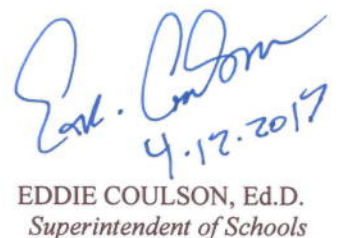 4.12.2017
EDDIE COULSON, Ed.D.
Superintendent of Schools